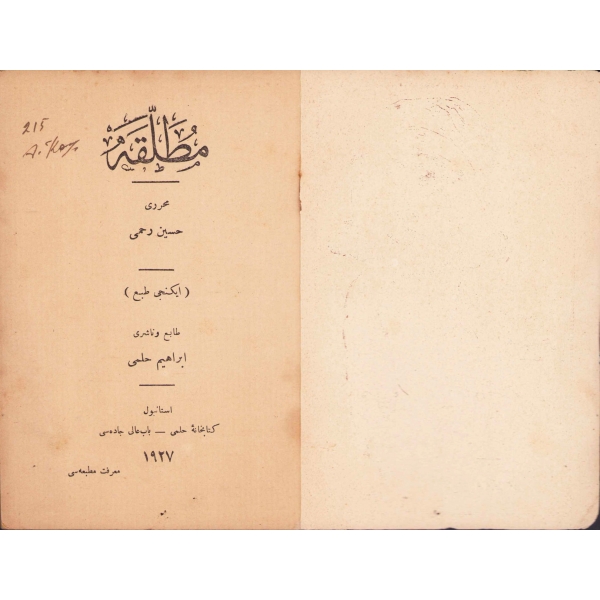 215
مُطَلَّقَه
محرری
حسین رحمی
( ایكنجی طبع )
طابع وناشری
ابراهیم حلمی
استانبول
كتابخانهٔ حلمی — باب عالی جاده‌سی
١٩٢٧
معرفت مطبعه‌سی